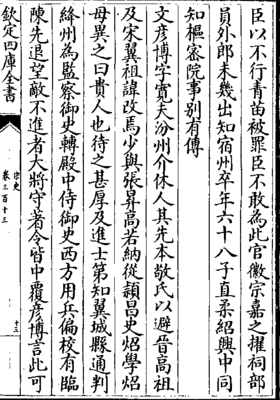 臣以不行青苗被罪臣不敢為此官徽宗嘉之擢祠部
員外郎未幾出知宿州卒年六十八子直柔紹興中同
知樞密院事别有傳
文彦博字寛夫汾州介休人其先本敬氏以避晉高祖
及宋翼祖諱改焉少與張昇高若納從潁昌史炤學炤
母異之曰貴人也待之甚厚及進士第知翼城縣通判
絳州為監察御史轉殿中侍御史西方用兵偏校有臨
陳先退望敵不進者大將守著令皆中覆彦博言此可
欽定四庫全書
宋史
卷三百十三
十三